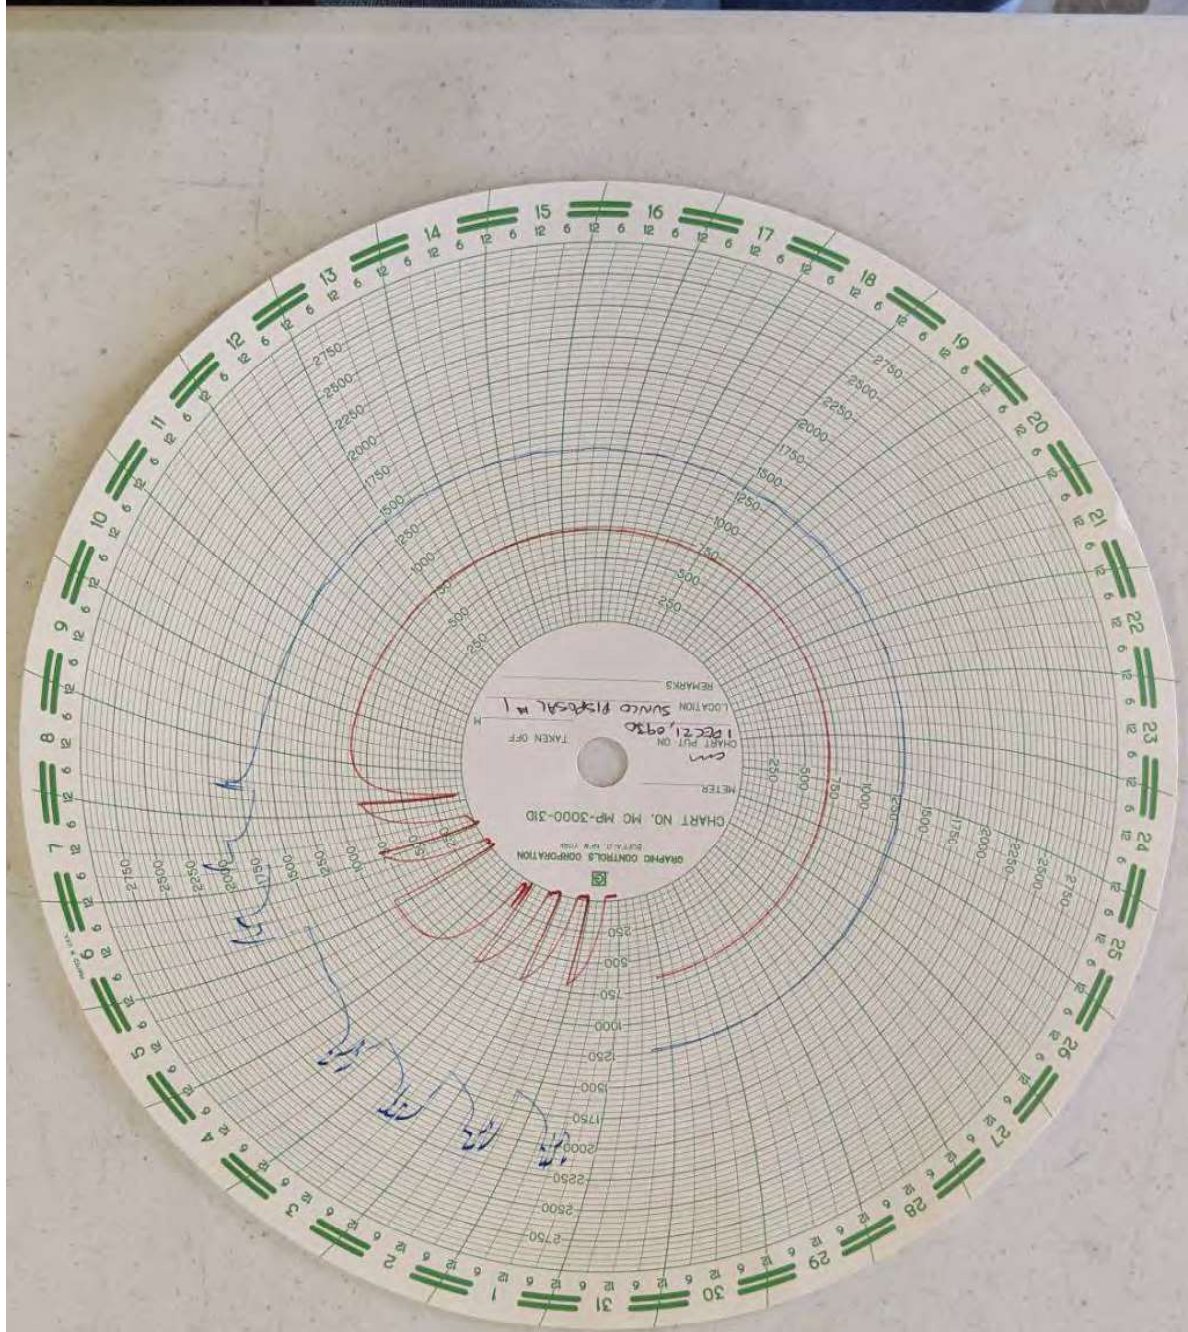 GRAPHIC CONTROLS CORPORATION
BUFFALO, NEW YORK
CHART NO. MC MP-3000-31D
METER
CHART PUT ON
TAKEN OFF
cm
1 DEC 21, 0930
M
LOCATION SUNCO DISPOSAL #1
REMARKS
PRINTED IN U.S.A.
1 2 3 4 5 6 7 8 9 10 11 12 13 14 15 16 17 18 19 20 21 22 23 24 25 26 27 28 29 30 31
6 12 6
250 500 750 1000 1250 1500 1750 2000 2250 2500 2750
250 500 750 1000 1250 1500 1750 2000 2250 2500 2750
250 500 750 1000 1250 1500 1750 2000 2250 2500 2750
250 500 1000 1250 1500 1750 2000 2250 2500 2750
250 1000 1250 1500 1750 2000 2250 2500 2750